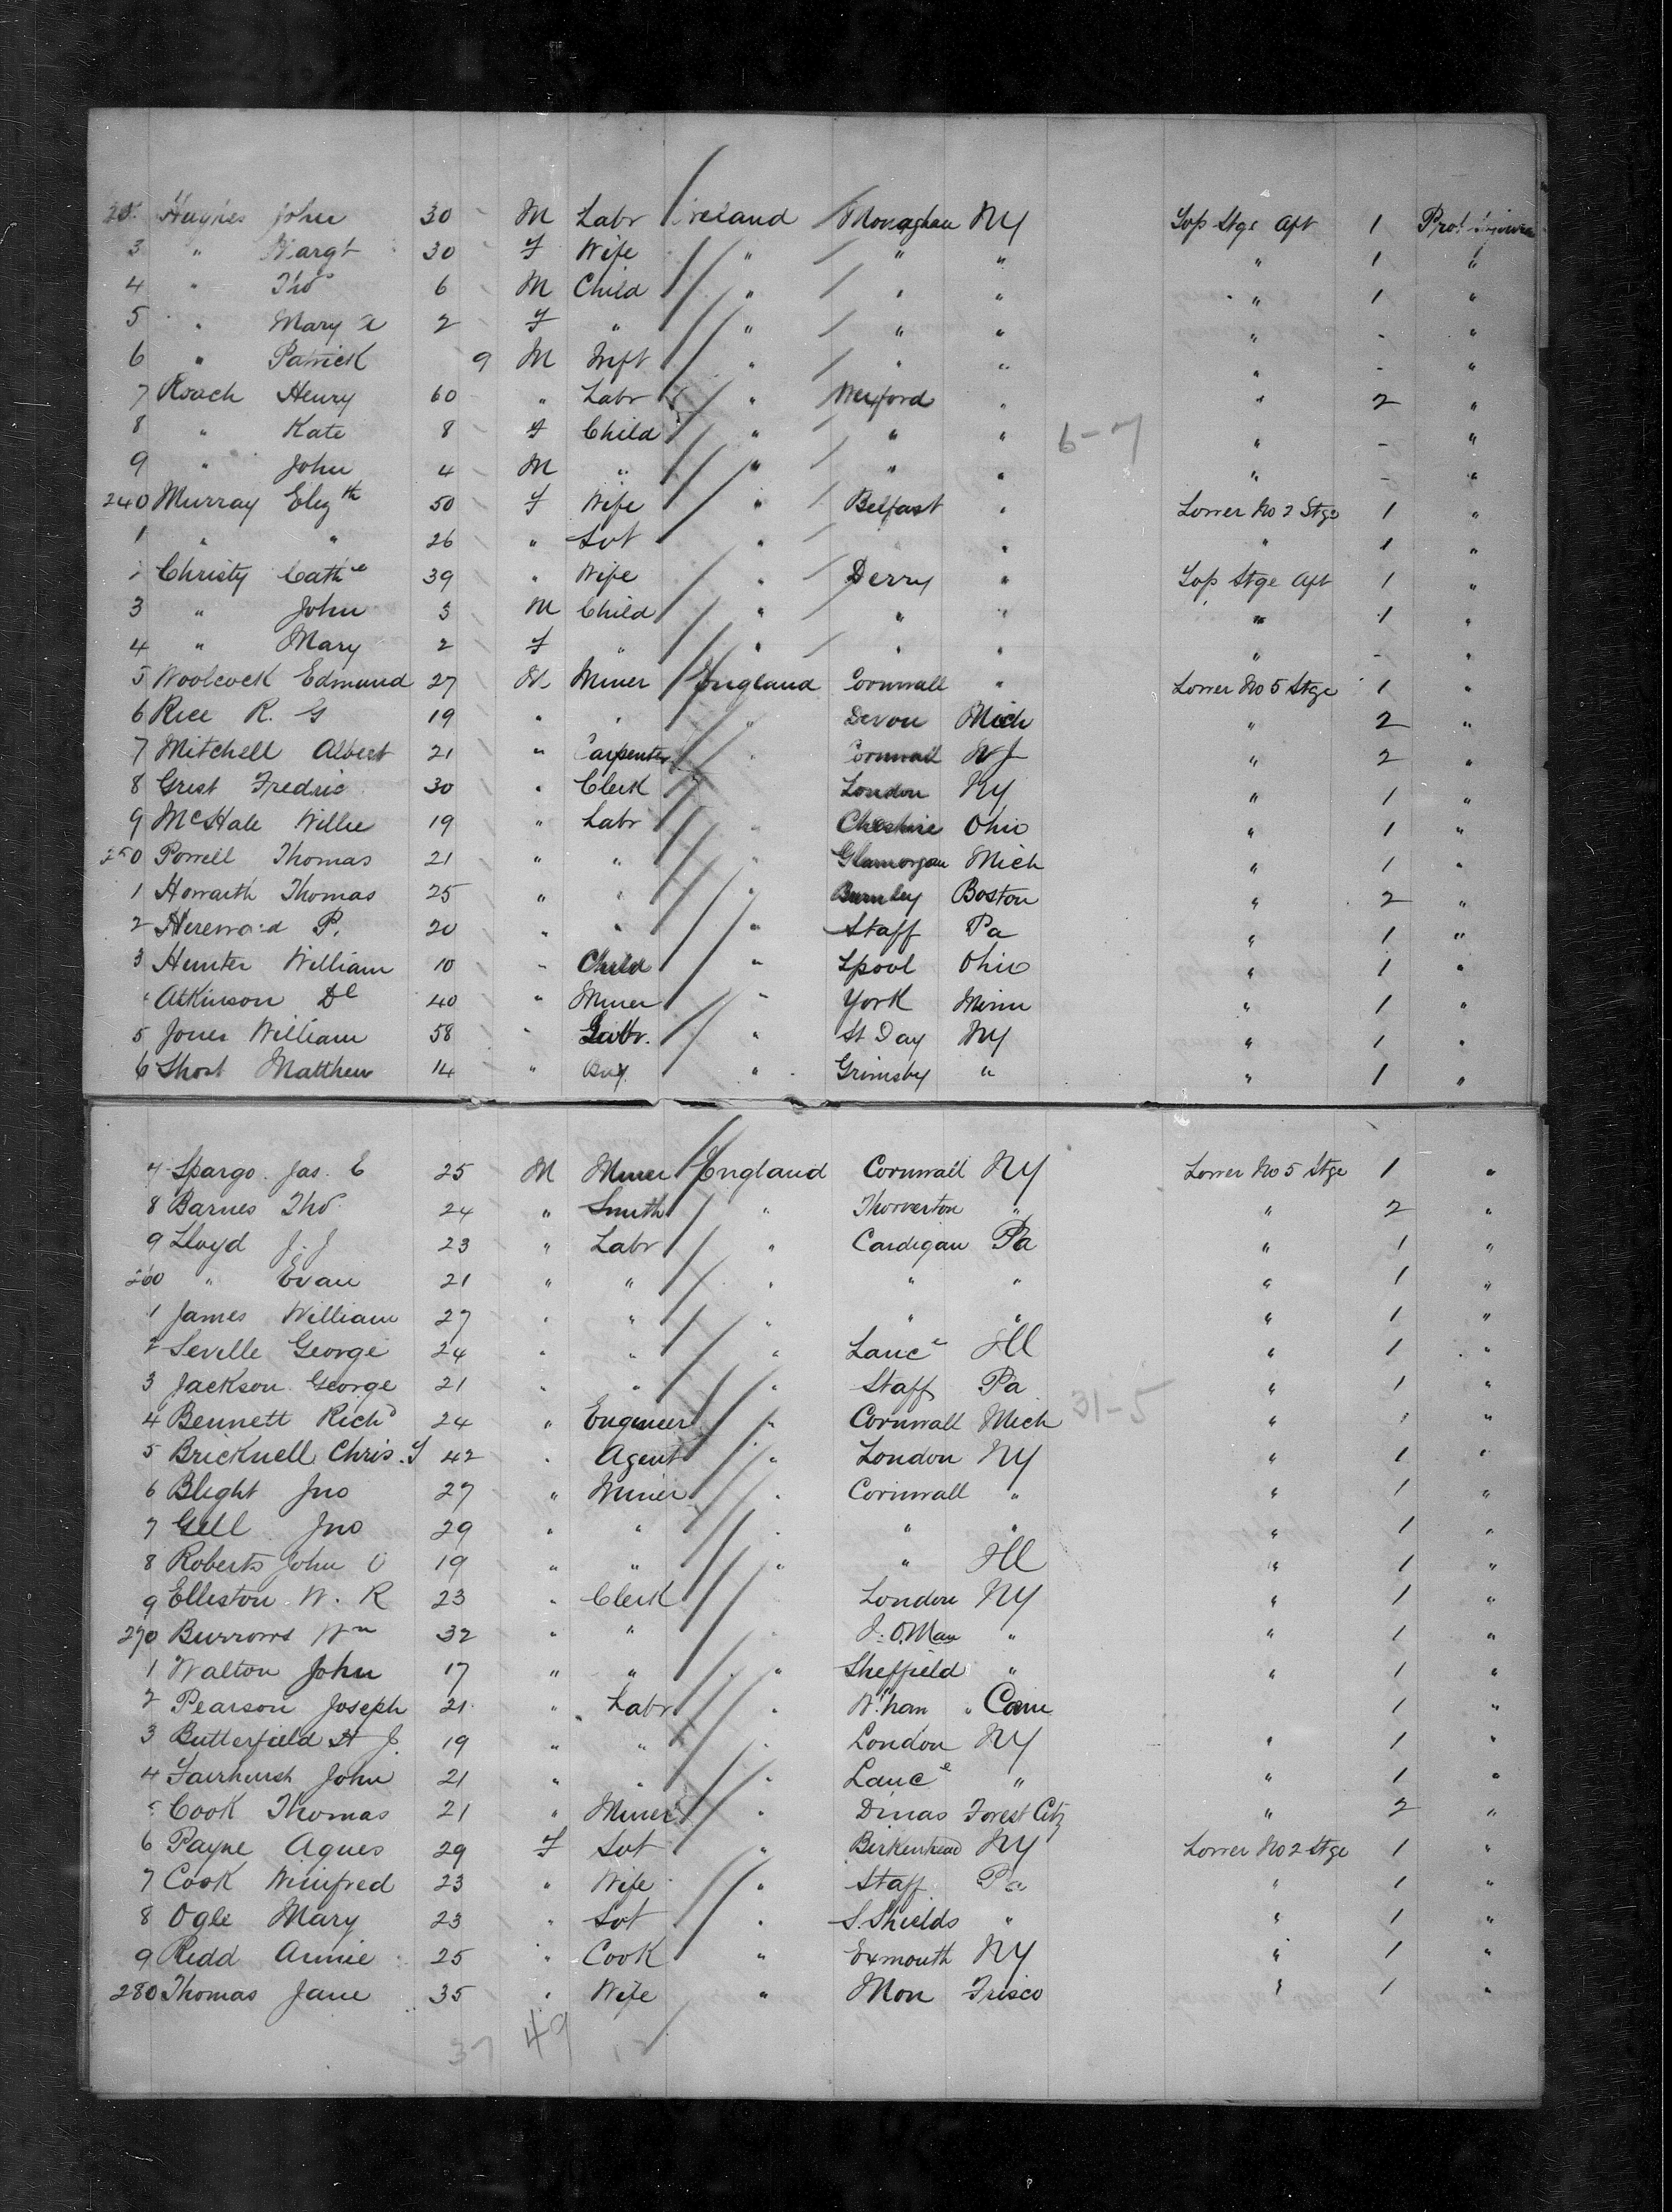 Hughes John 30 M Labr Ireland Monaghan NY Top Stge Aft 1
3 " Margt 30 F Wife " " " " 1 "
4 " Thos 6 M Child " " " " 1 "
5 " Mary A 2 F " " " " " - "
6 " Patrick 9 M Inft " " " " - "
7 Roach Henry 60 " Labr " Wexford " " 2 "
8 " Kate 8 F Child " " " 6-7 " - "
9 " John 4 M " " " " " - "
240 Murray Elizth 50 F Wife " Belfast " Lower No 2 Stge 1 "
1 " " 26 " Svt " " " " 1 "
2 Christy Cathe 39 " Wife " Derry " Top Stge Aft 1 "
3 " John 3 M Child " " " " 1 "
4 " Mary 2 F " " " " " - "
5 Woolcock Edmund 27 M Miner England Cornwall " Lower No 5 Stge 1 "
6 Rice R. G 19 " " " Devon Mich " 2 "
7 Mitchell Albert 21 " Carpenter " Cornwall NJ " 2 "
8 Grist Fredric 30 " Clerk " London NY " 1 "
9 McHale Willie 19 " Labr " Cheshire Ohio " 1 "
250 Powell Thomas 21 " " " Glamorgan Mich " 1 "
1 Howarth Thomas 25 " " " Burnley Boston " 2 "
2 Hereward P. 20 " " " Staff Pa " 1 "
3 Hunter William 10 " Child " Lpool Ohio " 1 "
4 Atkinson Dl 40 " Miner " York Minn " 1 "
5 Jones William 58 " Labr. " St Day NY " 1 "
6 Short Matthew 14 " Boy " Grimsby " " 1 "
7 Spargo Jas. E 25 M Miner England Cornwall NY Lower No 5 Stge 1 "
8 Barnes Thos 24 " Smith " Thorverton " " 2 "
9 Lloyd J. J 23 " Labr " Cardigan Pa " 1 "
260 " Evan 21 " " " " " " 1 "
1 James William 27 " " " " " " 1 "
2 Seville George 24 " " " Lance Ill " 1 "
3 Jackson George 21 " " " Staff Pa " 1 "
4 Bennett Richd 24 " Engineer " Cornwall Mich 31-5 " 1 "
5 Bricknell Chris. J 42 " Agent " London NY " 1 "
6 Blight Jno 27 " Miner " Cornwall " " 1 "
7 Gell Jno 29 " " " " " " 1 "
8 Roberts John O 19 " " " " Ill " 1 "
9 Elleston W. R 23 " Clerk " London NY " 1 "
270 Burrows Wm 32 " " " I. O. Man " " 1 "
1 Walton John 17 " " " Sheffield " " 1 "
2 Pearson Joseph 21 " Labr " W.ham " Conn 1 "
3 Butterfield H J. 19 " " " London NY " 1 "
4 Fairhurst John 21 " " " Lance " " 1 "
5 Cook Thomas 21 " Miner " Dinas Forest City " 2 "
6 Payne Agnes 29 F Svt " Birkenhead NY Lower No 2 Stge 1 "
7 Cook Winifred 23 " Wife " Staff Pa " 1 "
8 Ogle Mary 23 " Svt " S. Shields " " 1 "
9 Redd Annie 25 " Cook " Exmouth NY " 1 "
280 Thomas Jane 35 " Wife " Mon Frisco " 1 "
37 49 12